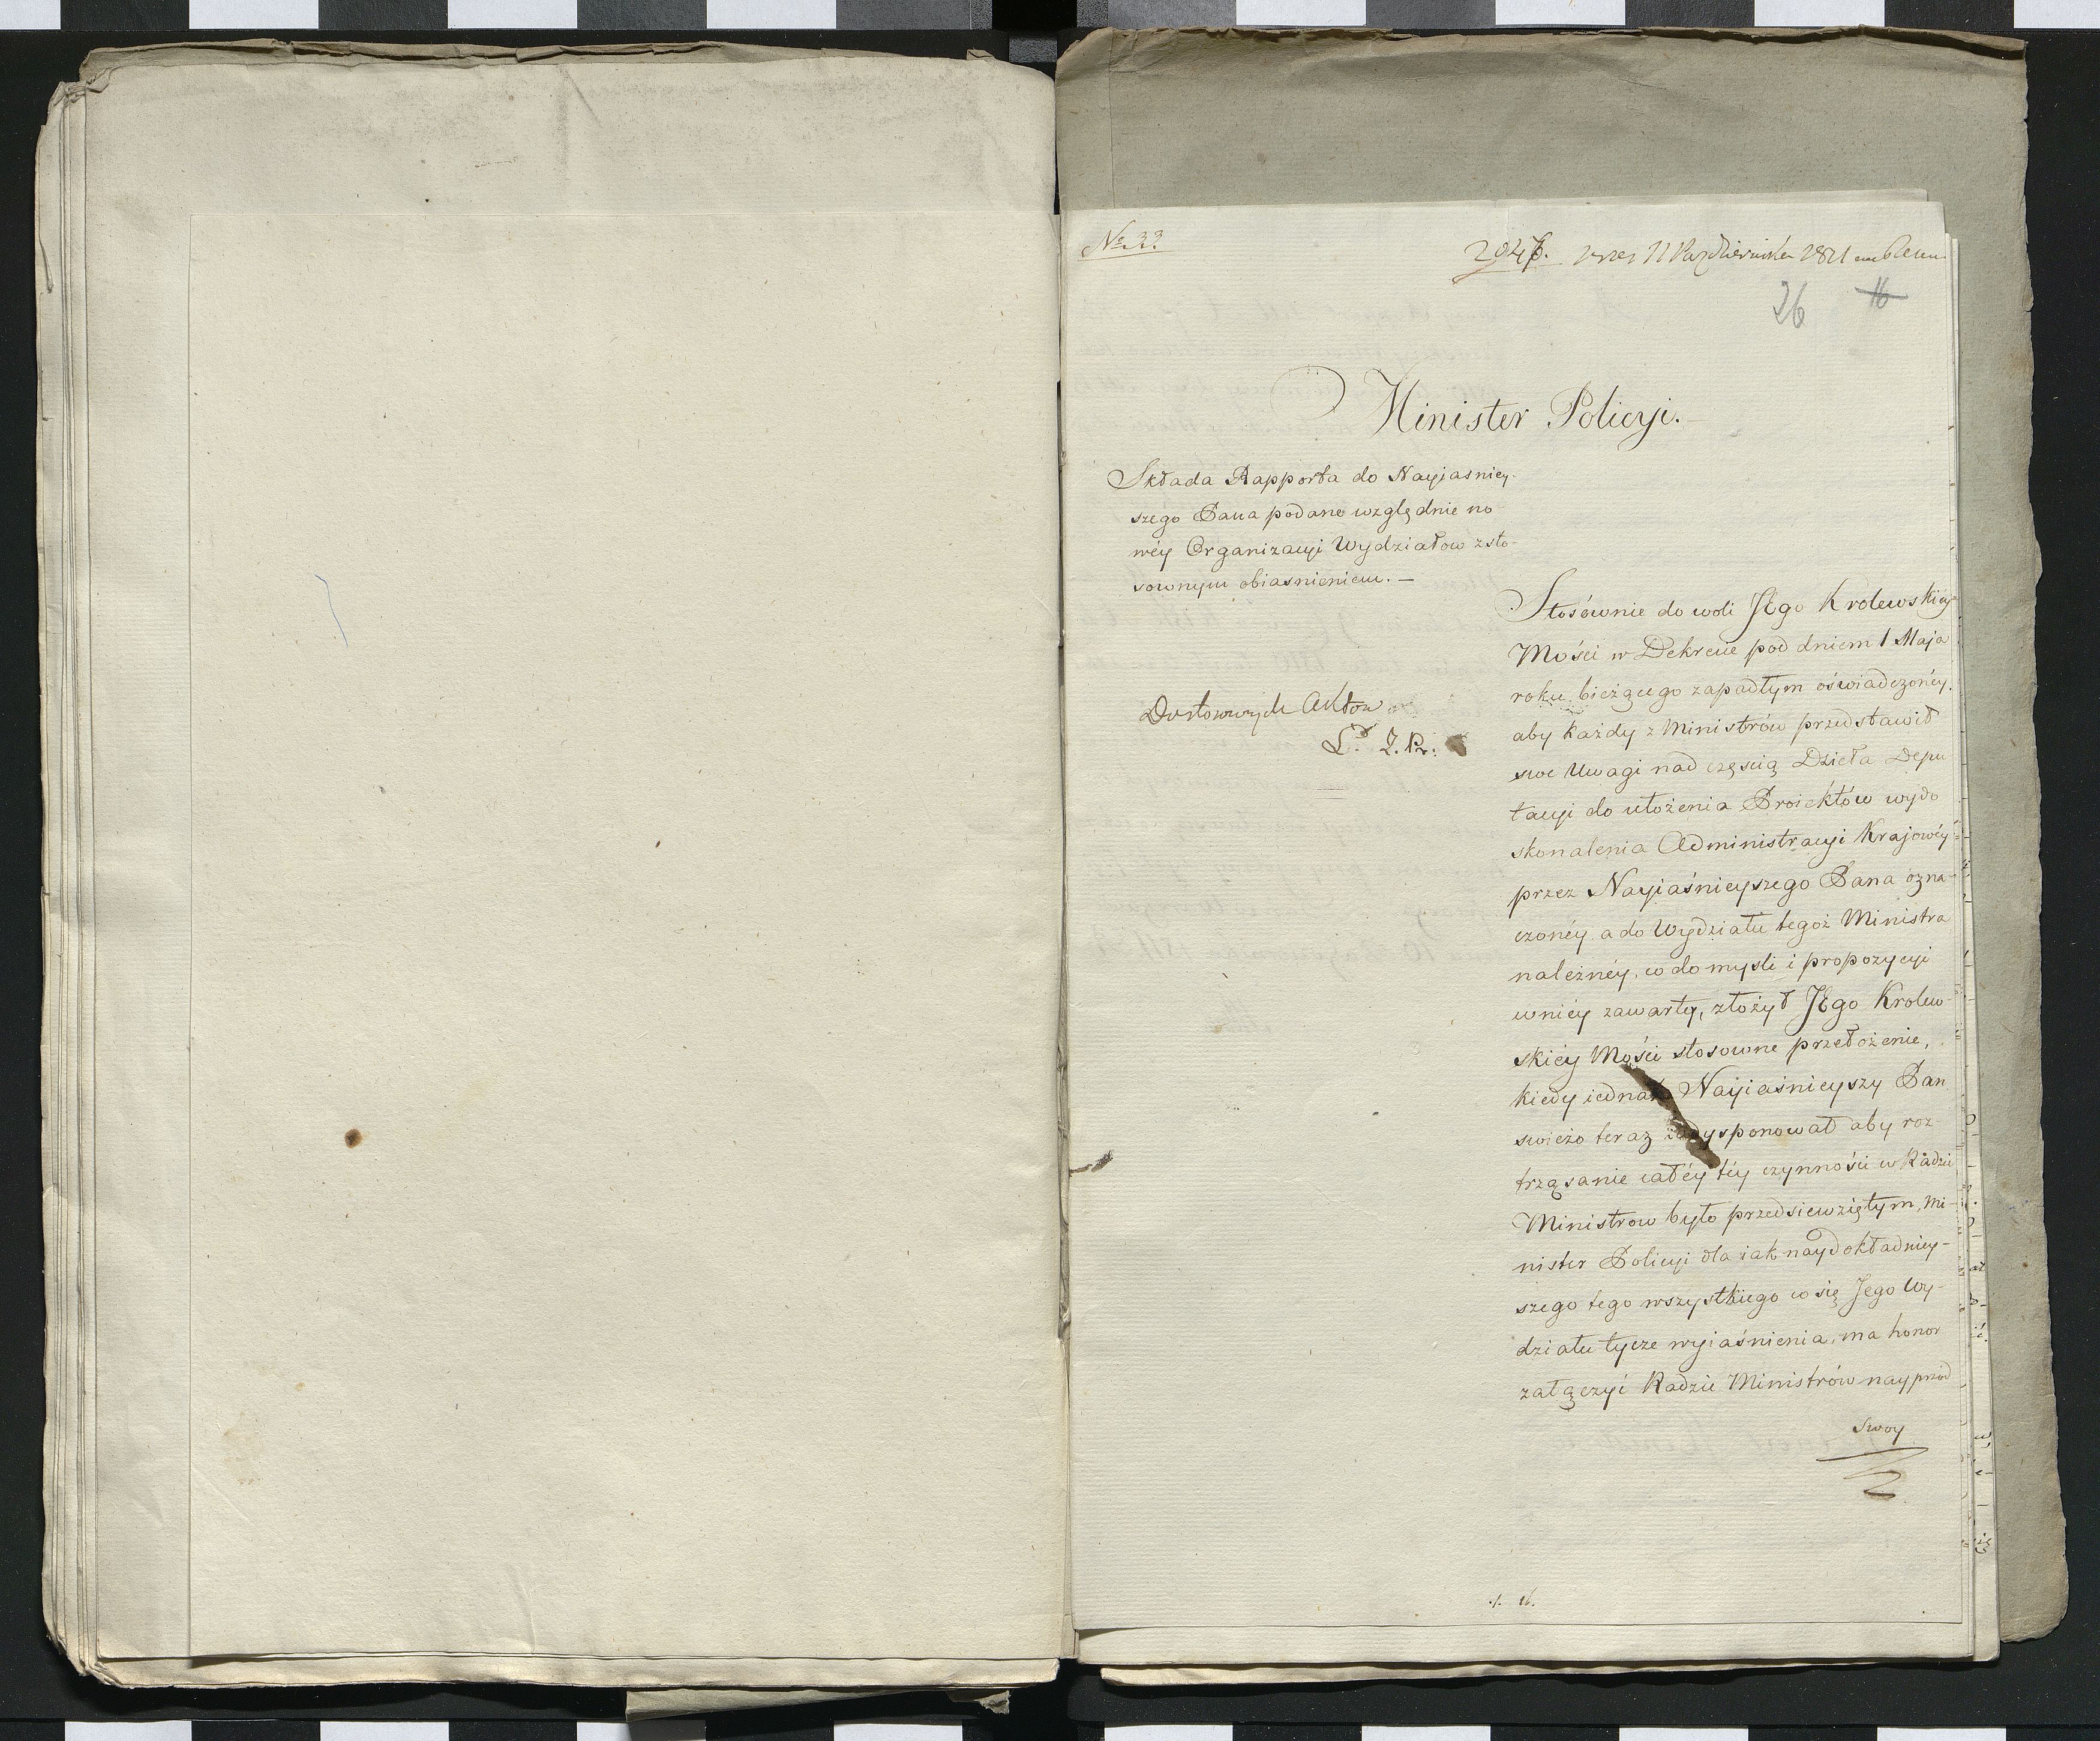 No 33.
2046. prez 11 Października 1811
26 16
Minister Policyi.
Składa Rapporta do Nayjasniey-
szego Pana podane względnie no
wéy Organizacyi Wydziałow z sto-
sownym obiasnieniem. —
Do stownych Aktow
L. J. Pr.
Stosównie do woli JEgo Krolewskiey
Mości w Dekrecie pod dniem 1 Maja
roku bieżącego zapadłym oświadczonéy,
aby każdy z Ministrów przedstawił
swe Uwagi nad częscią Dzieła Depu
tacyi do ułożenia Proiektów wydo
skonalenia Administracyi Krajowéy
przez Nayiaśnieyszego Pana ozna-
czonéy a do Wydziału tegoż Ministra
należnéy, co do mysli i propozycyi
w niéy zawartey, złożył JEgo Krolew-
skiéy Mości stosowne przełożenie,
kiedy iednak Nayiaśnieyszy Pan
swieżo teraz zadysponował aby roz
trząsanie całéy téy czynności w Radzie
Ministrow było przedsiewziętym, Mi-
nister Policyi dla iak naydokładniey-
szego tego wszystkiego co się Jego Wy-
działu tycze wyiaśnienia, ma honor
załączyć Radzie Ministrów nayprzod
Swoy